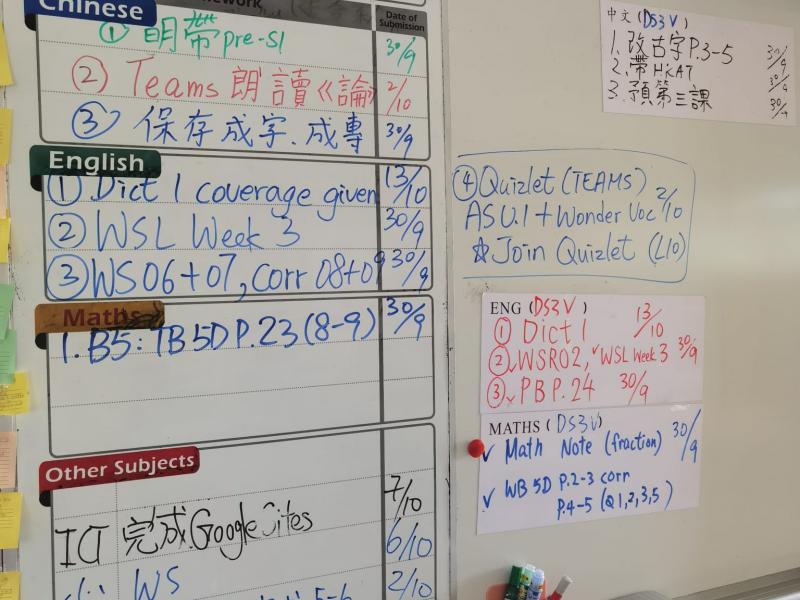 Chinese
Date of Submission
① 明帶 pre-S1 30/9
② Teams 朗讀《論》 2/10
③ 保存成字.成專 30/9
English
① Dict 1 coverage given 13/10
② WSL Week 3 30/9
③ WS06+07, Corr 08+09 30/9
Maths
1. B5: TB 5D P.23 (8-9) 30/9
Other Subjects
ICT 完成 Google Sites 7/10
6/10
WS 2/10
5-6
中文 (DS3V)
1. 改古字 P.3-5 30/9
2. 帶 HKAT 30/9
3. 預第三課 30/9
④ Quizlet (TEAMS)
ASU.1 + Wonder Voc 2/10
☆ Join Quizlet (L10)
ENG (DS3V)
① Dict 1 13/10
② ✓WSR02, ✓WSL Week 3 30/9
③ ✓PB P.24 30/9
MATHS (DS3V)
✓ Math Note (fraction) 30/9
✓ WB 5D P.2-3 corr
P.4-5 (Q1,2,3,5)